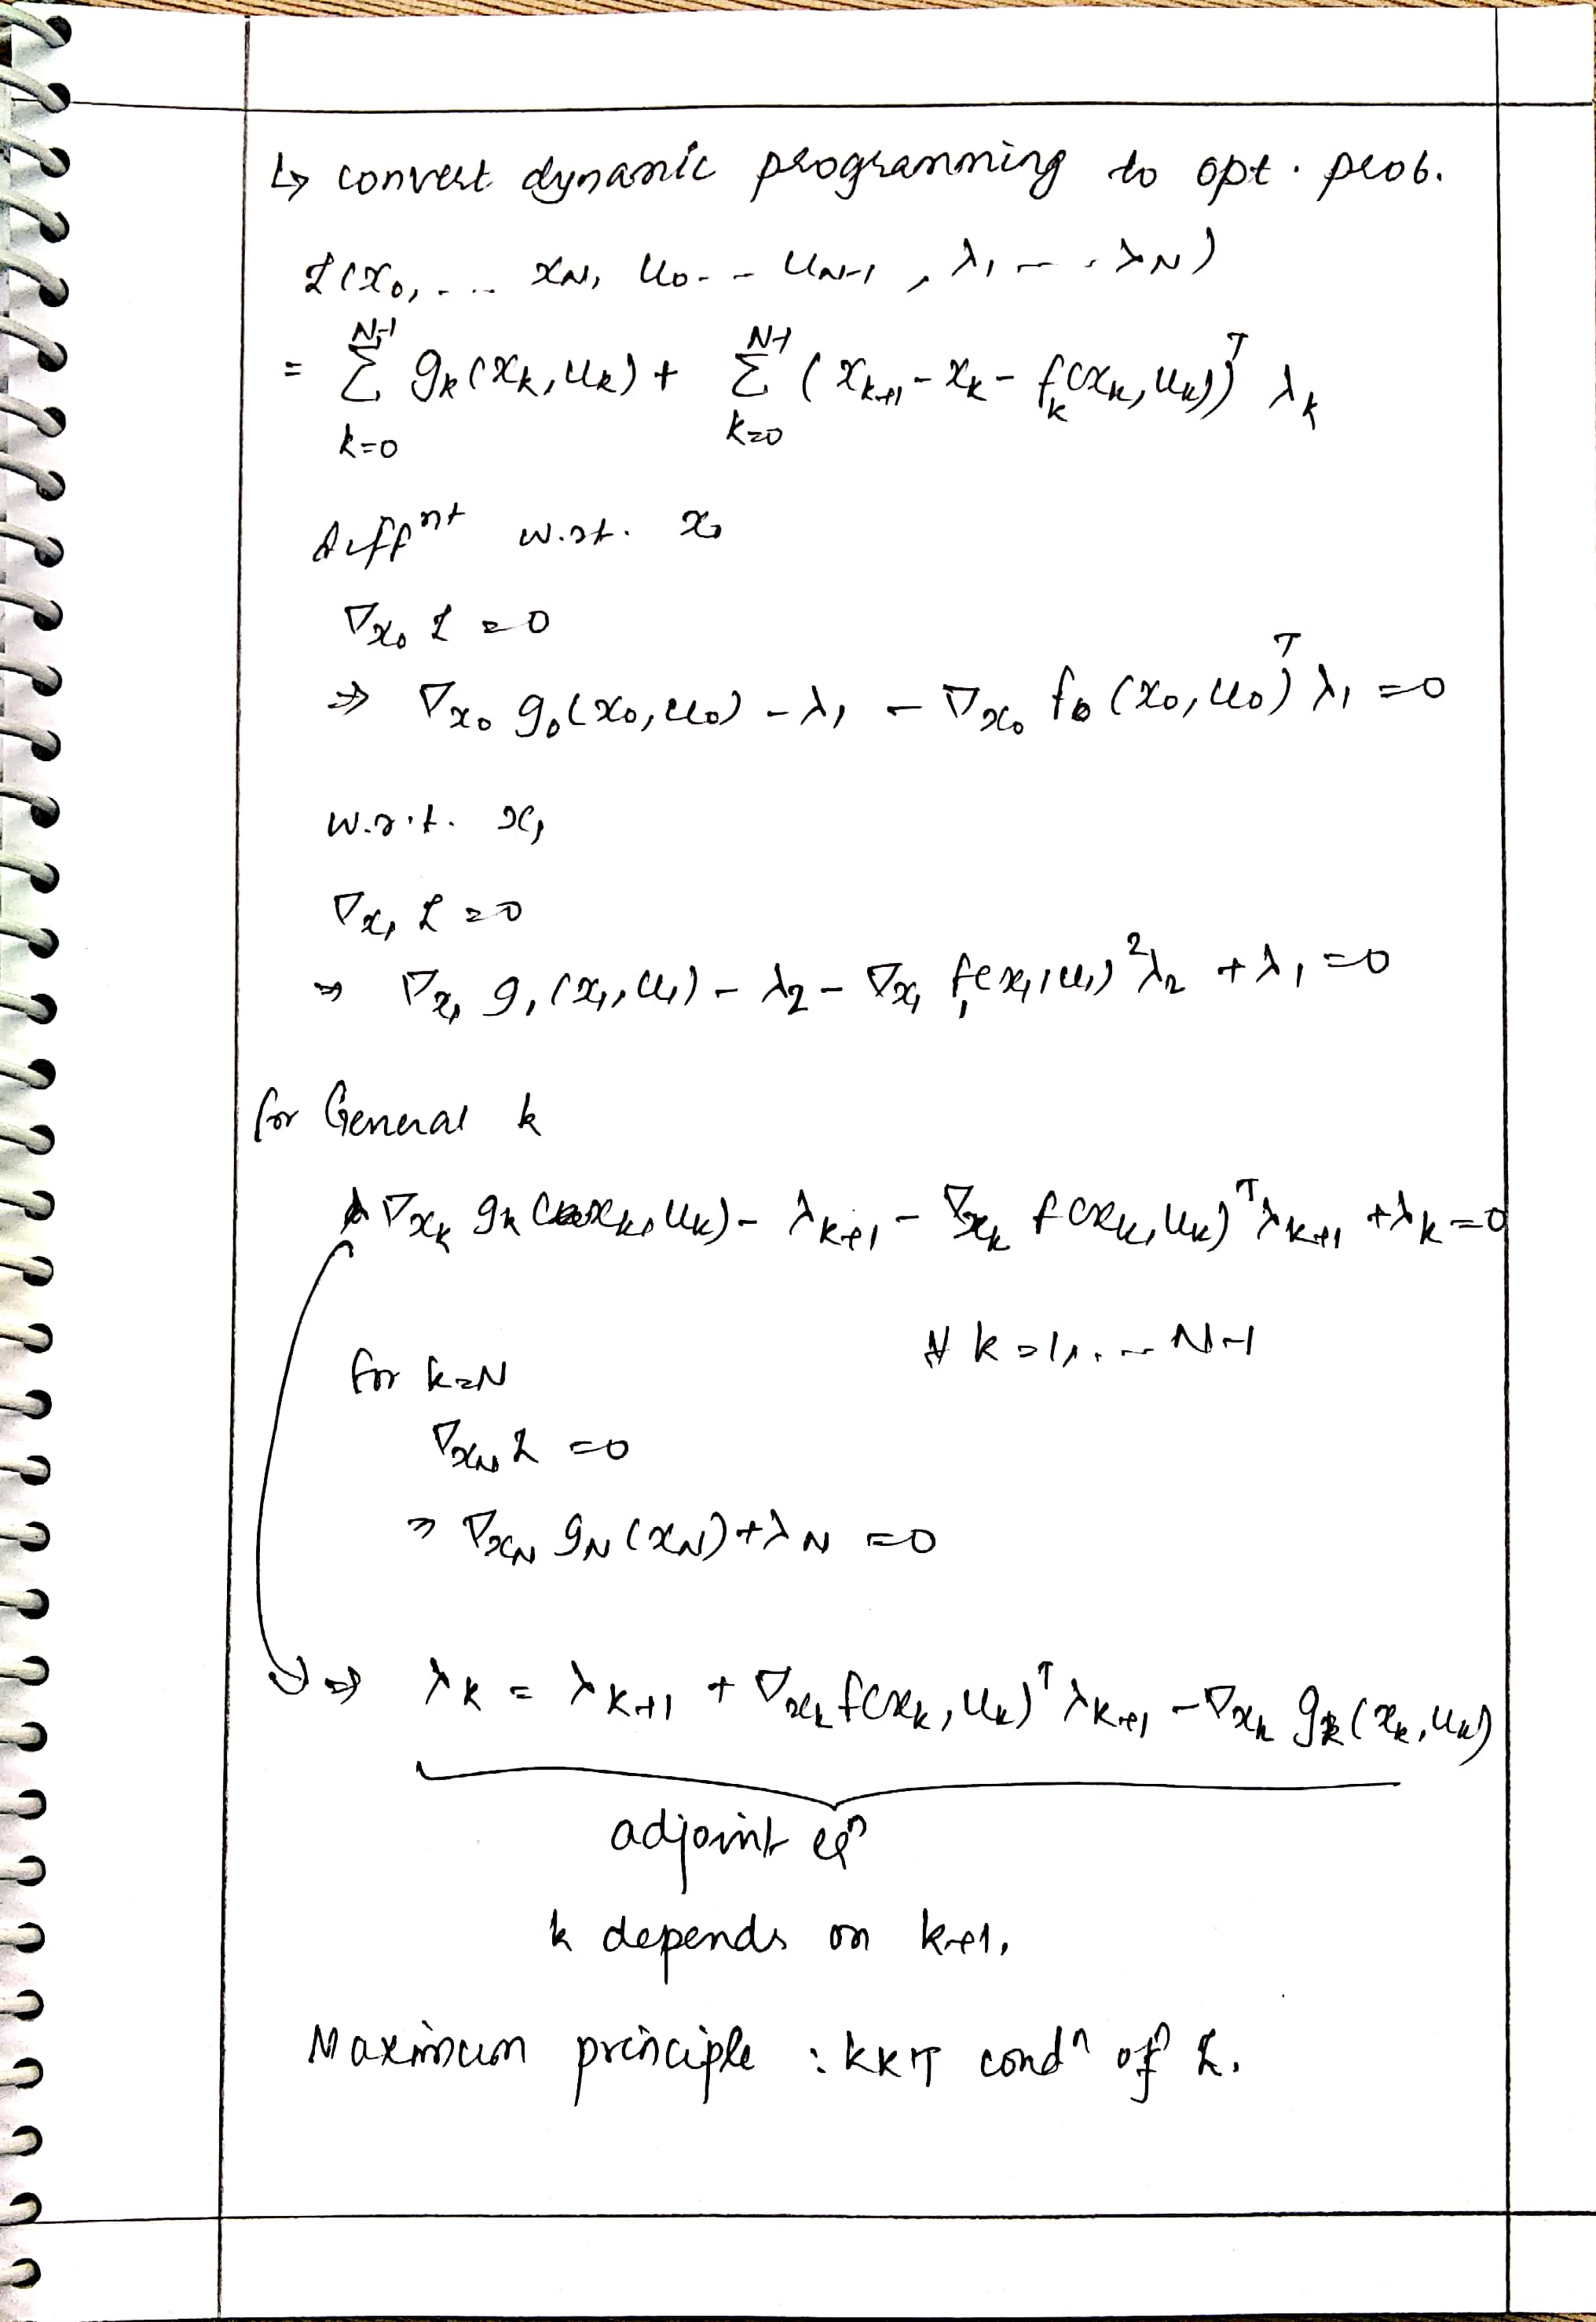 ↳ convert dynamic programming to opt. prob.
L(x₀, ... x_N, u₀ - - u_{N-1}, λ₁ - - λ_N)
= Σ_{k=0}^{N-1} g_k(x_k, u_k) + Σ_{k=0}^{N-1} (x_{k+1} - x_k - f_k(x_k, u_k))^T λ_k
diffⁿᵗ w.r.t. x₀
∇_{x₀} L = 0
⇒ ∇_{x₀} g₀(x₀, u₀) - λ₁ - ∇_{x₀} f₀(x₀, u₀)^T λ₁ = 0
w.r.t. x₁
∇_{x₁} L = 0
⇒ ∇_{x₁} g₁(x₁, u₁) - λ₂ - ∇_{x₁} f₁(x₁, u₁)² λ₂ + λ₁ = 0
for General k
∇_{x_k} g_k(x_k, u_k) - λ_{k+1} - ∇_{x_k} f(x_k, u_k)^T λ_{k+1} + λ_k = 0
∀ k = 1, ... N-1
for k=N
∇_{x_N} L = 0
⇒ ∇_{x_N} g_N(x_N) + λ_N = 0
⇒ λ_k = λ_{k+1} + ∇_{x_k} f(x_k, u_k)^T λ_{k+1} - ∇_{x_k} g_k(x_k, u_k)
adjoint eqⁿ
k depends on k+1,
Maximum principle : KKT condⁿ of L.